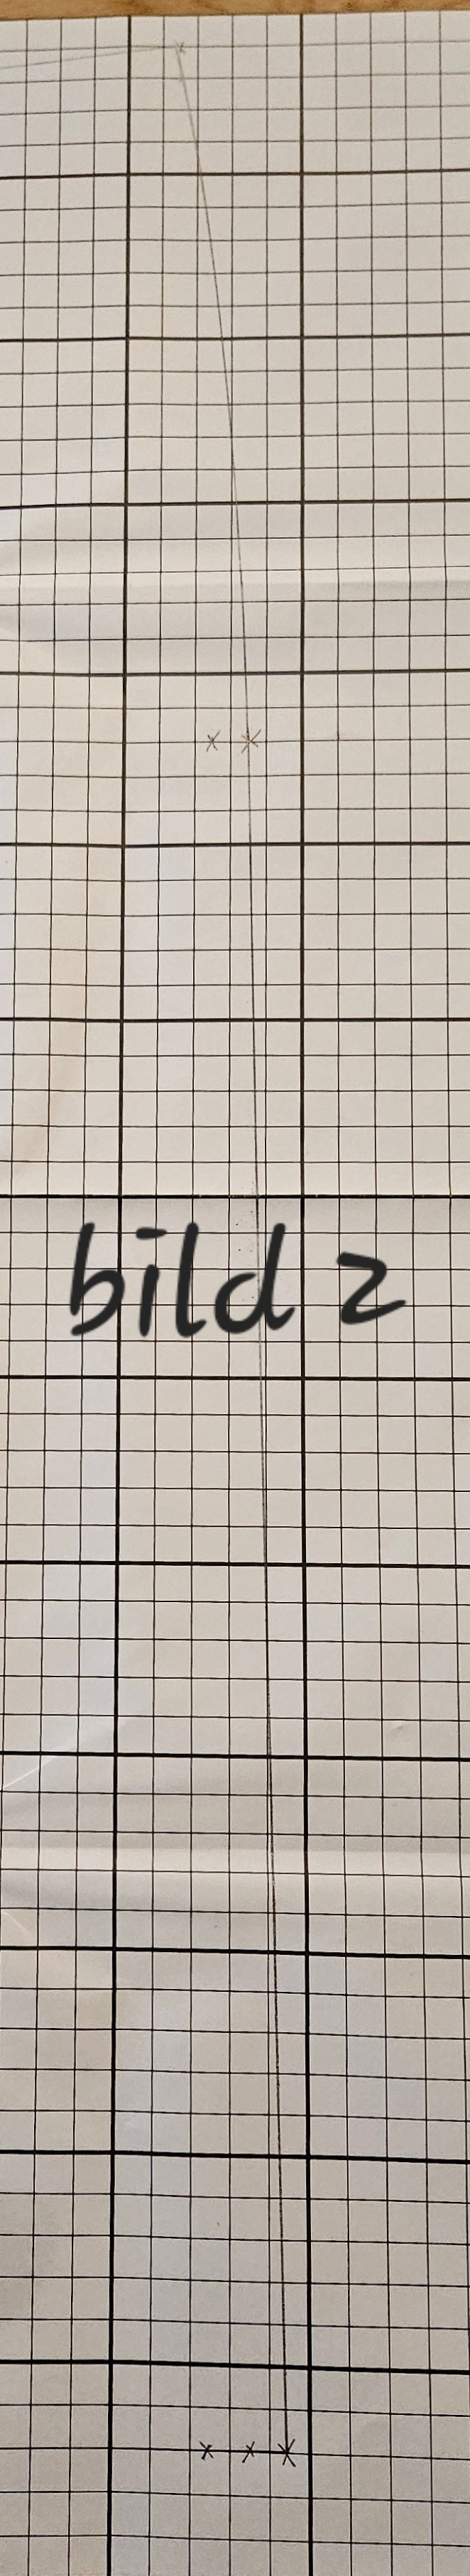 bild 2